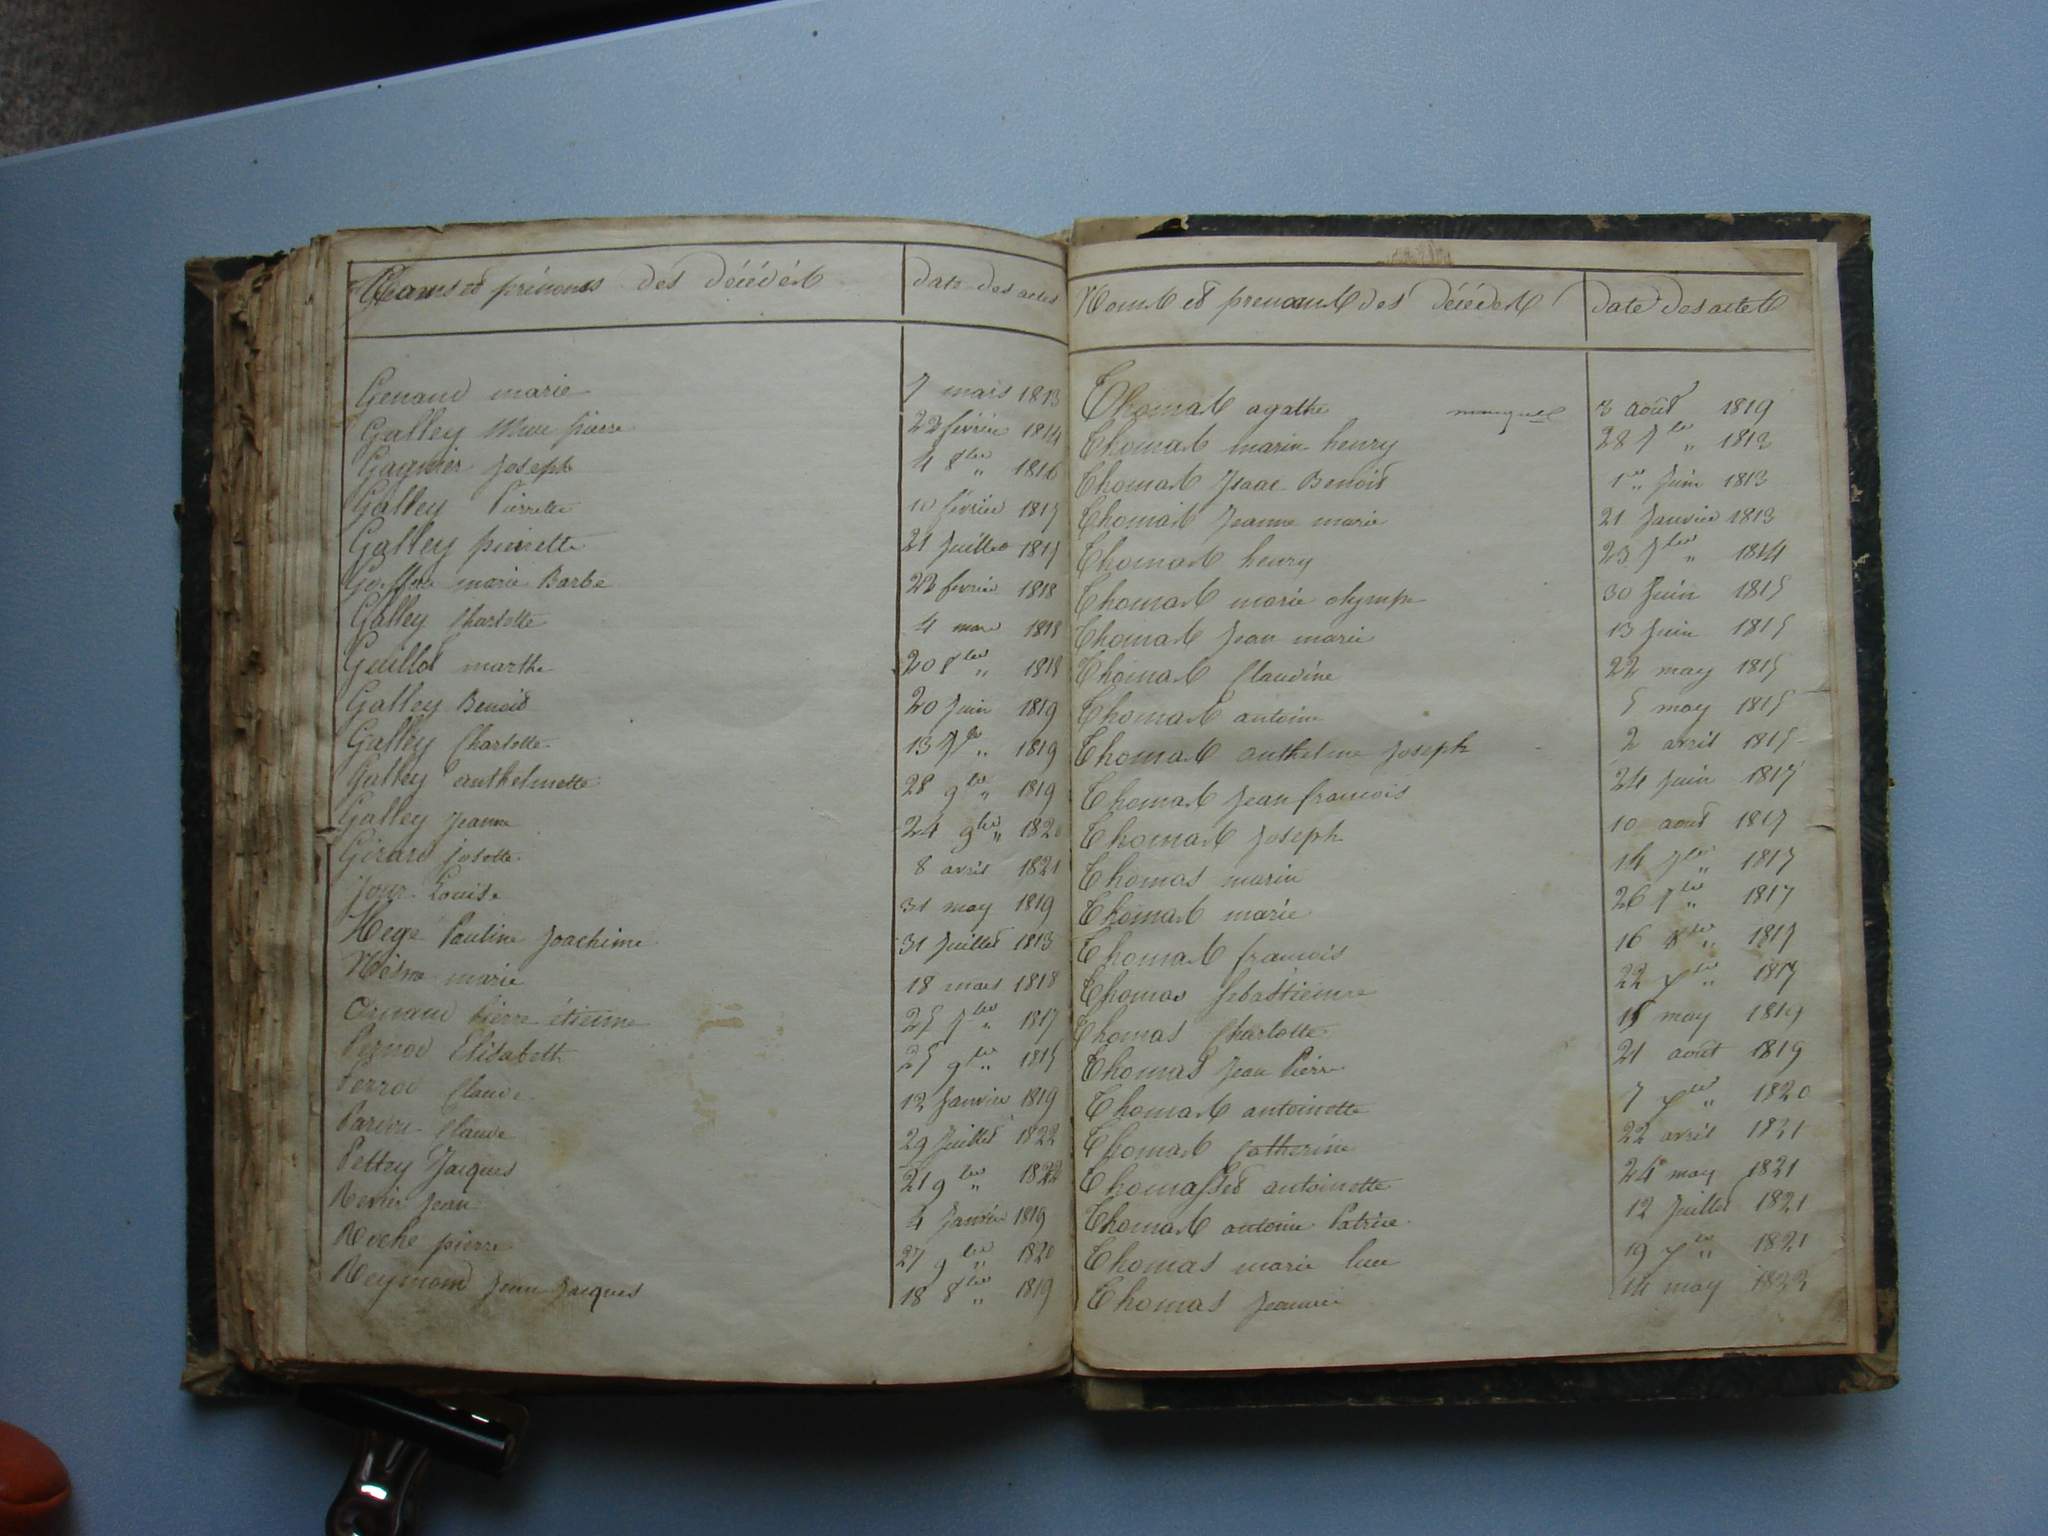 Noms et prénoms des décédés date des actes
Genaud marie 7 mars 1813
Galley pierre 22 février 1814
Gagnier Joseph 4 8bre " 1816
Galley Pierrette 10 février 1817
Galley pierrette 21 Juillet 1817
marie Barbe 22 février 1818
Galley Charlotte 4 mars 1818
Guillot marthe 20 8bre " 1818
Galley Benoit 20 Juin 1819
Galley Charlotte 13 7bre " 1819
Galley anthelmette 28 9bre " 1819
Galley Jeanne 24 9bre " 1820
Girard josette 8 avril 1821
Jour Louise 31 may 1819
Hege Pauline Joachime 31 Juillet 1813
marie 18 mars 1818
Ornaud pierre étienne 25 7bre " 1817
Pernod Elisabeth 25 9bre " 1815
Perrod Claude 12 Janvier 1819
Claude 29 Juillet 1822
Pettey Jacques 21 9bre " 1822
Revier Jean 4 Janvier 1819
Roche pierre 27 9bre " 1820
Reymond Jean Jacques 18 8bre " 1819
Noms et prenoms des décédés date des actes
Thomas agathe manque 3 août 1819
Thomas marin henry 28 7bre " 1813
Thomas Isaac Benoit 1er " Juin 1813
Thomas Jeanne marie 21 Janvier 1813
Thomas henry 23 7bre " 1814
Thomas marie olympe 30 Juin 1815
Thomas Jean marie 13 Juin 1815
Thomas Claudine 22 may 1815
Thomas antoine 5 may 1815
Thomas anthelme Joseph 2 avril 1815
Thomas Jean francois 24 Juin 1817
Thomas Joseph 10 aout 1817
Thomas marin 14 7bre " 1817
Thomas marie 26 7bre " 1817
Thomas francois 16 8bre " 1817
Thomas Sebastienne 22 xbre " 1817
Thomas Charlotte 15 may 1819
Thomas Jean Pierre 21 août 1819
Thomas antoinette 7 xbre " 1820
Thomas Catherine 22 avril 1821
Thomasset antoinette 24 may 1821
Thomas antoine Patrice 12 Juillet 1821
Thomas marie luce 19 xbre " 1821
Thomas Jeanne 14 may 1822